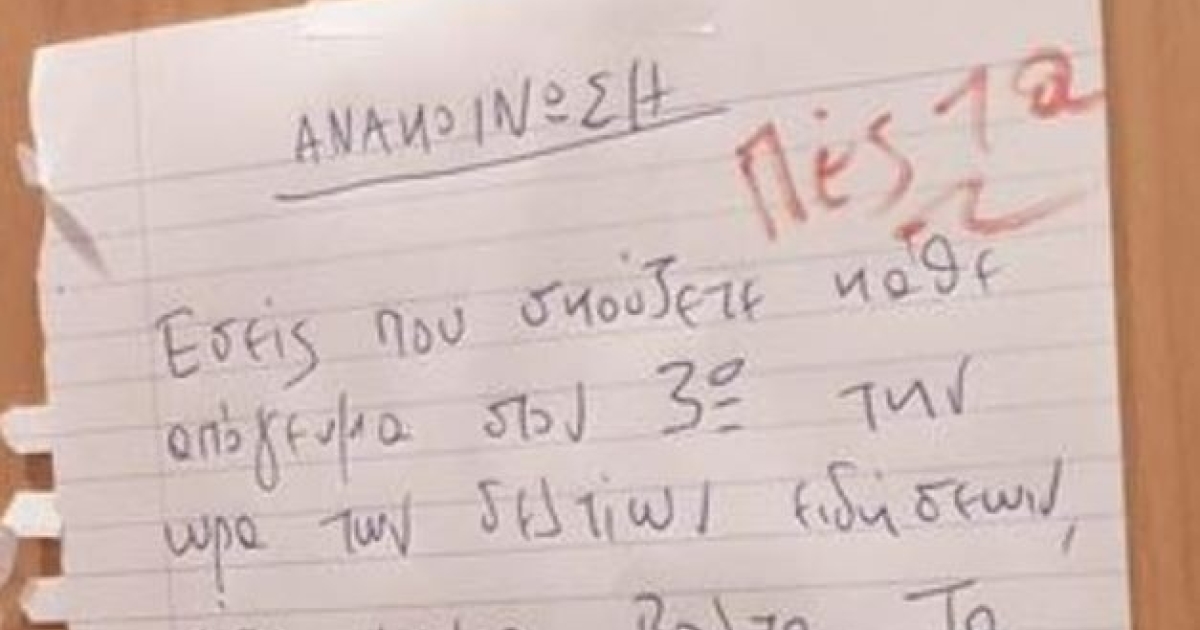 ΑΝΑΚΟΙΝΩΣΗ
Πες 1α
Εσείς που σκούζετε κάθε
απόγευμα στον 3º την
ώρα των δελτίων ειδήσεων,
Το